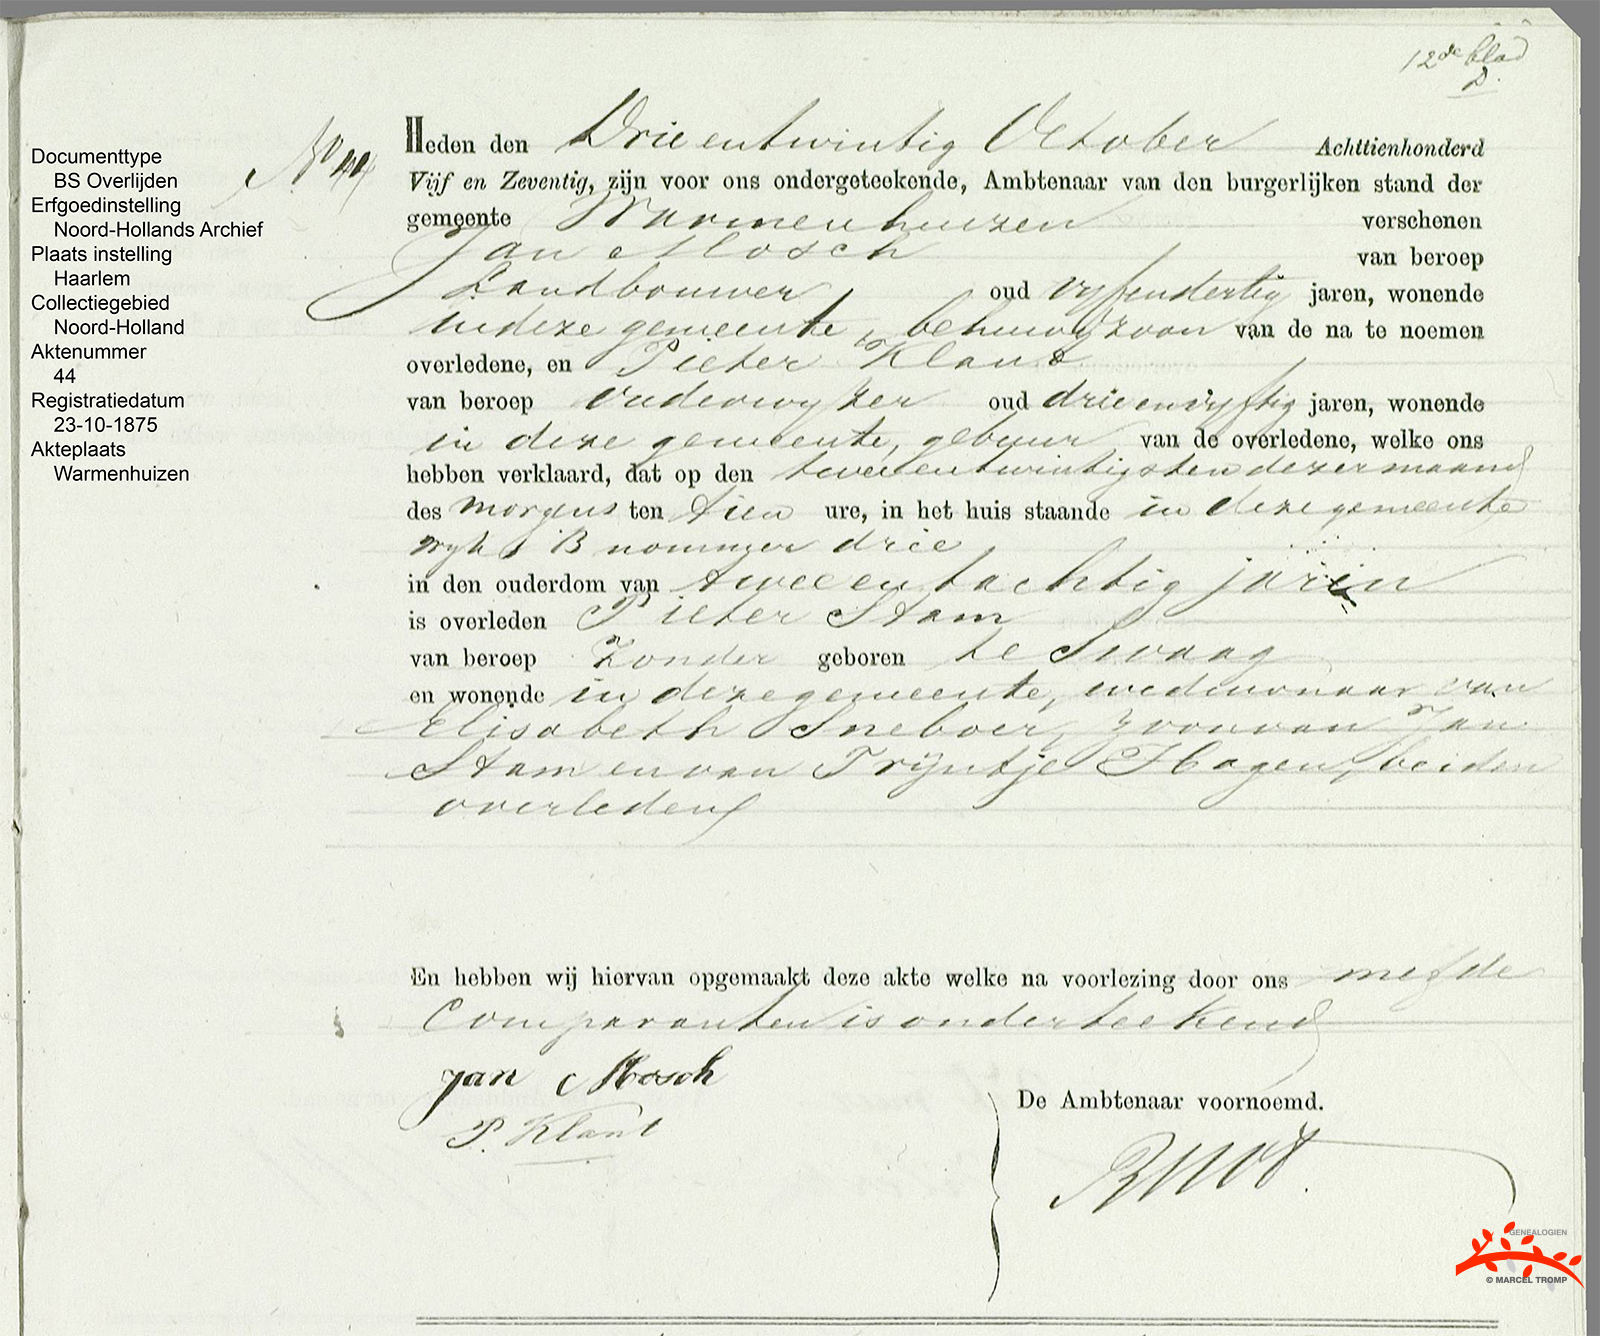 12de blad
D.
Documenttype
BS Overlijden
Erfgoedinstelling
Noord-Hollands Archief
Plaats instelling
Haarlem
Collectiegebied
Noord-Holland
Aktenummer
44
Registratiedatum
23-10-1875
Akteplaats
Warmenhuizen
No 44
Heden den Drieentwintig October Achttienhonderd
Vijf en Zeventig, zijn voor ons ondergeteekende, Ambtenaar van den burgerlijken stand der
gemeente Warmenhuizen verschenen
Jan Mosch van beroep
Landbouwer oud vyfendertig jaren, wonende
in deze gemeente, behuwdzoon van de na te noemen
overledene, en Pieter Klant
van beroep onderwyzer oud drieenvyftig jaren, wonende
in deze gemeente, gebuur van de overledene, welke ons
hebben verklaard, dat op den tweeentwintigsten dezer maand
des morgens ten tien ure, in het huis staande in deze gemeente
wyk B nommer drie
in den ouderdom van tweeentachtig jaren
is overleden Pieter Stam
van beroep Zonder geboren te Swaag
en wonende in deze gemeente, weduwnaar van
Elisabeth Sneboer, zoon van Jan
Stam en van Trijntje Hagen, beiden
overleden
En hebben wij hiervan opgemaakt deze akte welke na voorlezing door ons met de
Comparanten is onderteekend
Jan Mosch
P. Klant
De Ambtenaar voornoemd.
GENEALOGIEN
© MARCEL TROMP